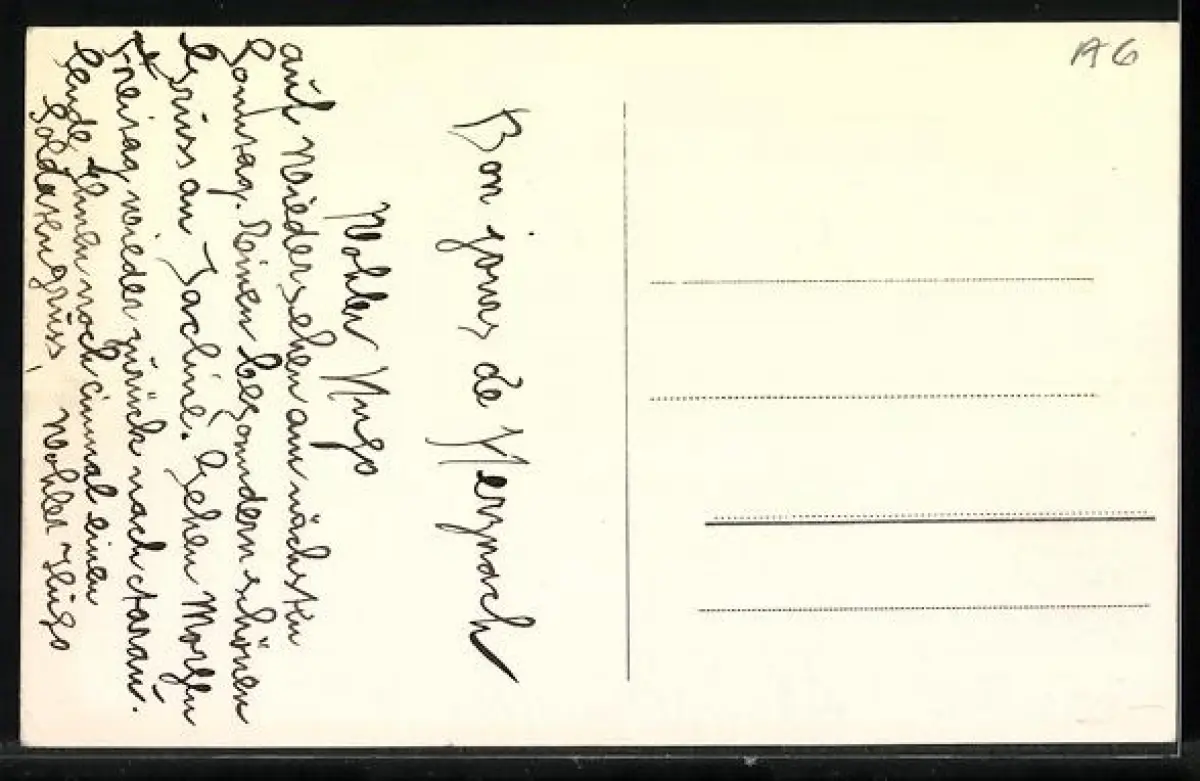 Bon jour de Herznach
Wohler Hugo
auf Wiedersehen am nächsten
Sonntag. Einen besondern schönen
Gruss an Jacline. Gehen Morgen
Freitag wieder zurück nach Aarau.
Sende Ihnen noch einmal einen
Soldatengruss, Wohler Hugo
A6